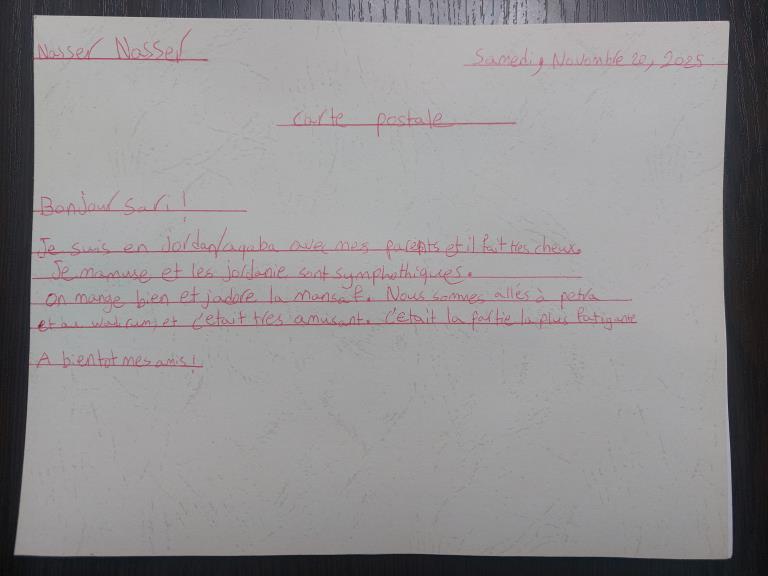 Nasser Nasser
Samedi, Novombre 20, 2025
Carte postale
Bonjour Sari!
Je suis en jordan/aqaba avec mes parents et il fait tres cheux.
Je mamuse et les jordanie sont symphothiques.
On mange bien et jadore la mansaf. Nous sommes allés à petra
et au wadi rum, et c'etait tres amusant. c'etait la partie la plus fatigante
A bientot mes amis!